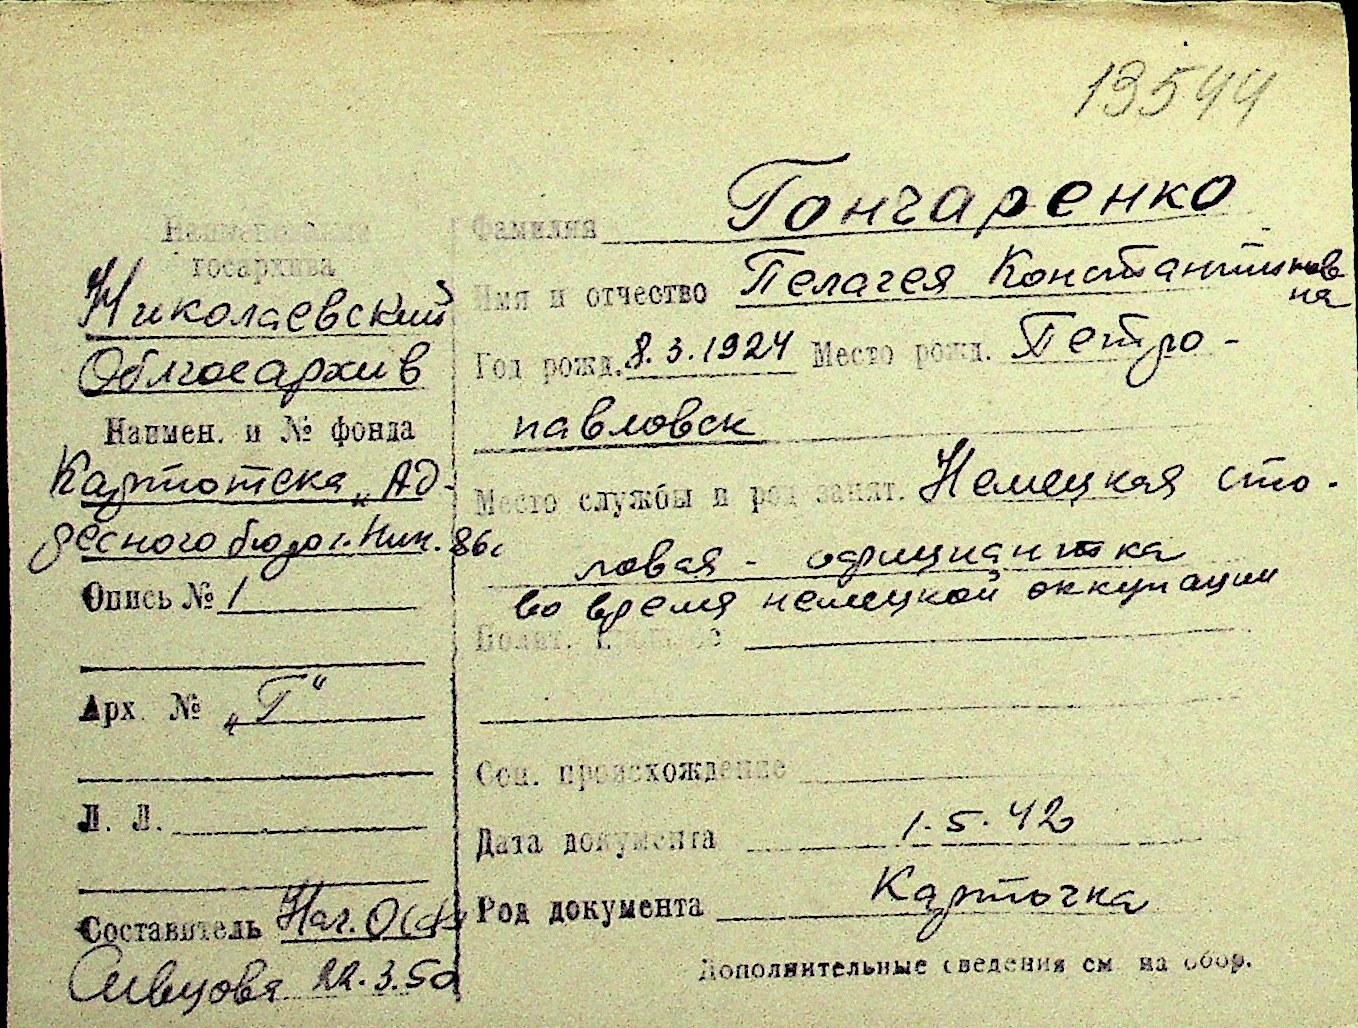 13544
Наименование
госархива
Николаевский
Облгосархив
Наимен. и № фонда
Картотека „Ад-
ресного бюро г. Ник.
Опись № 1
Арх. № „Г“
Л. Л.
Составитель Нач.
Сивцова 22.3.50
Фамилия Гончаренко
Имя и отчество Пелагея Константинов
на
Год рожд. 8.3.1924 Место рожд. Петро-
павловск
Место службы и род занят. Немецкая сто-
ловая - официантка
во время немецкой оккупации
Полит.
Соц. происхождение
Дата документа 1.5.42
Род документа Карточка
Дополнительные сведения см. на обор.